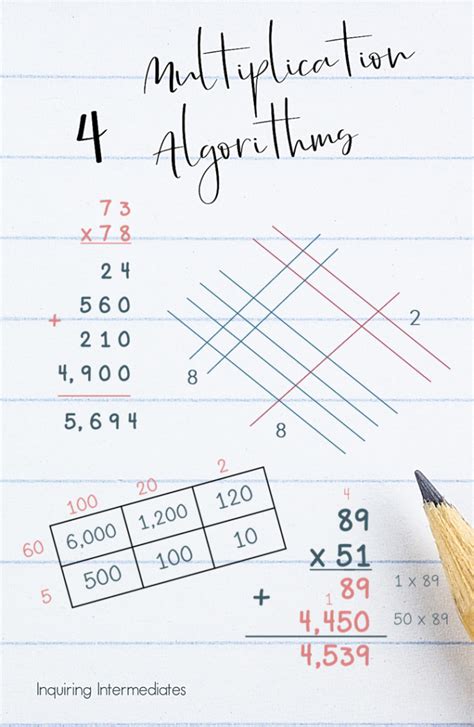 4 Multiplication
Algorithms
73
x 78
24
560
+ 210
4,900
5,694
2
8
8
100 20 2
60 6,000 1,200 120
5 500 100 10
4
89
x 51
+ 89 1 x 89
1
4,450 50 x 89
4,539
Inquiring Intermediates